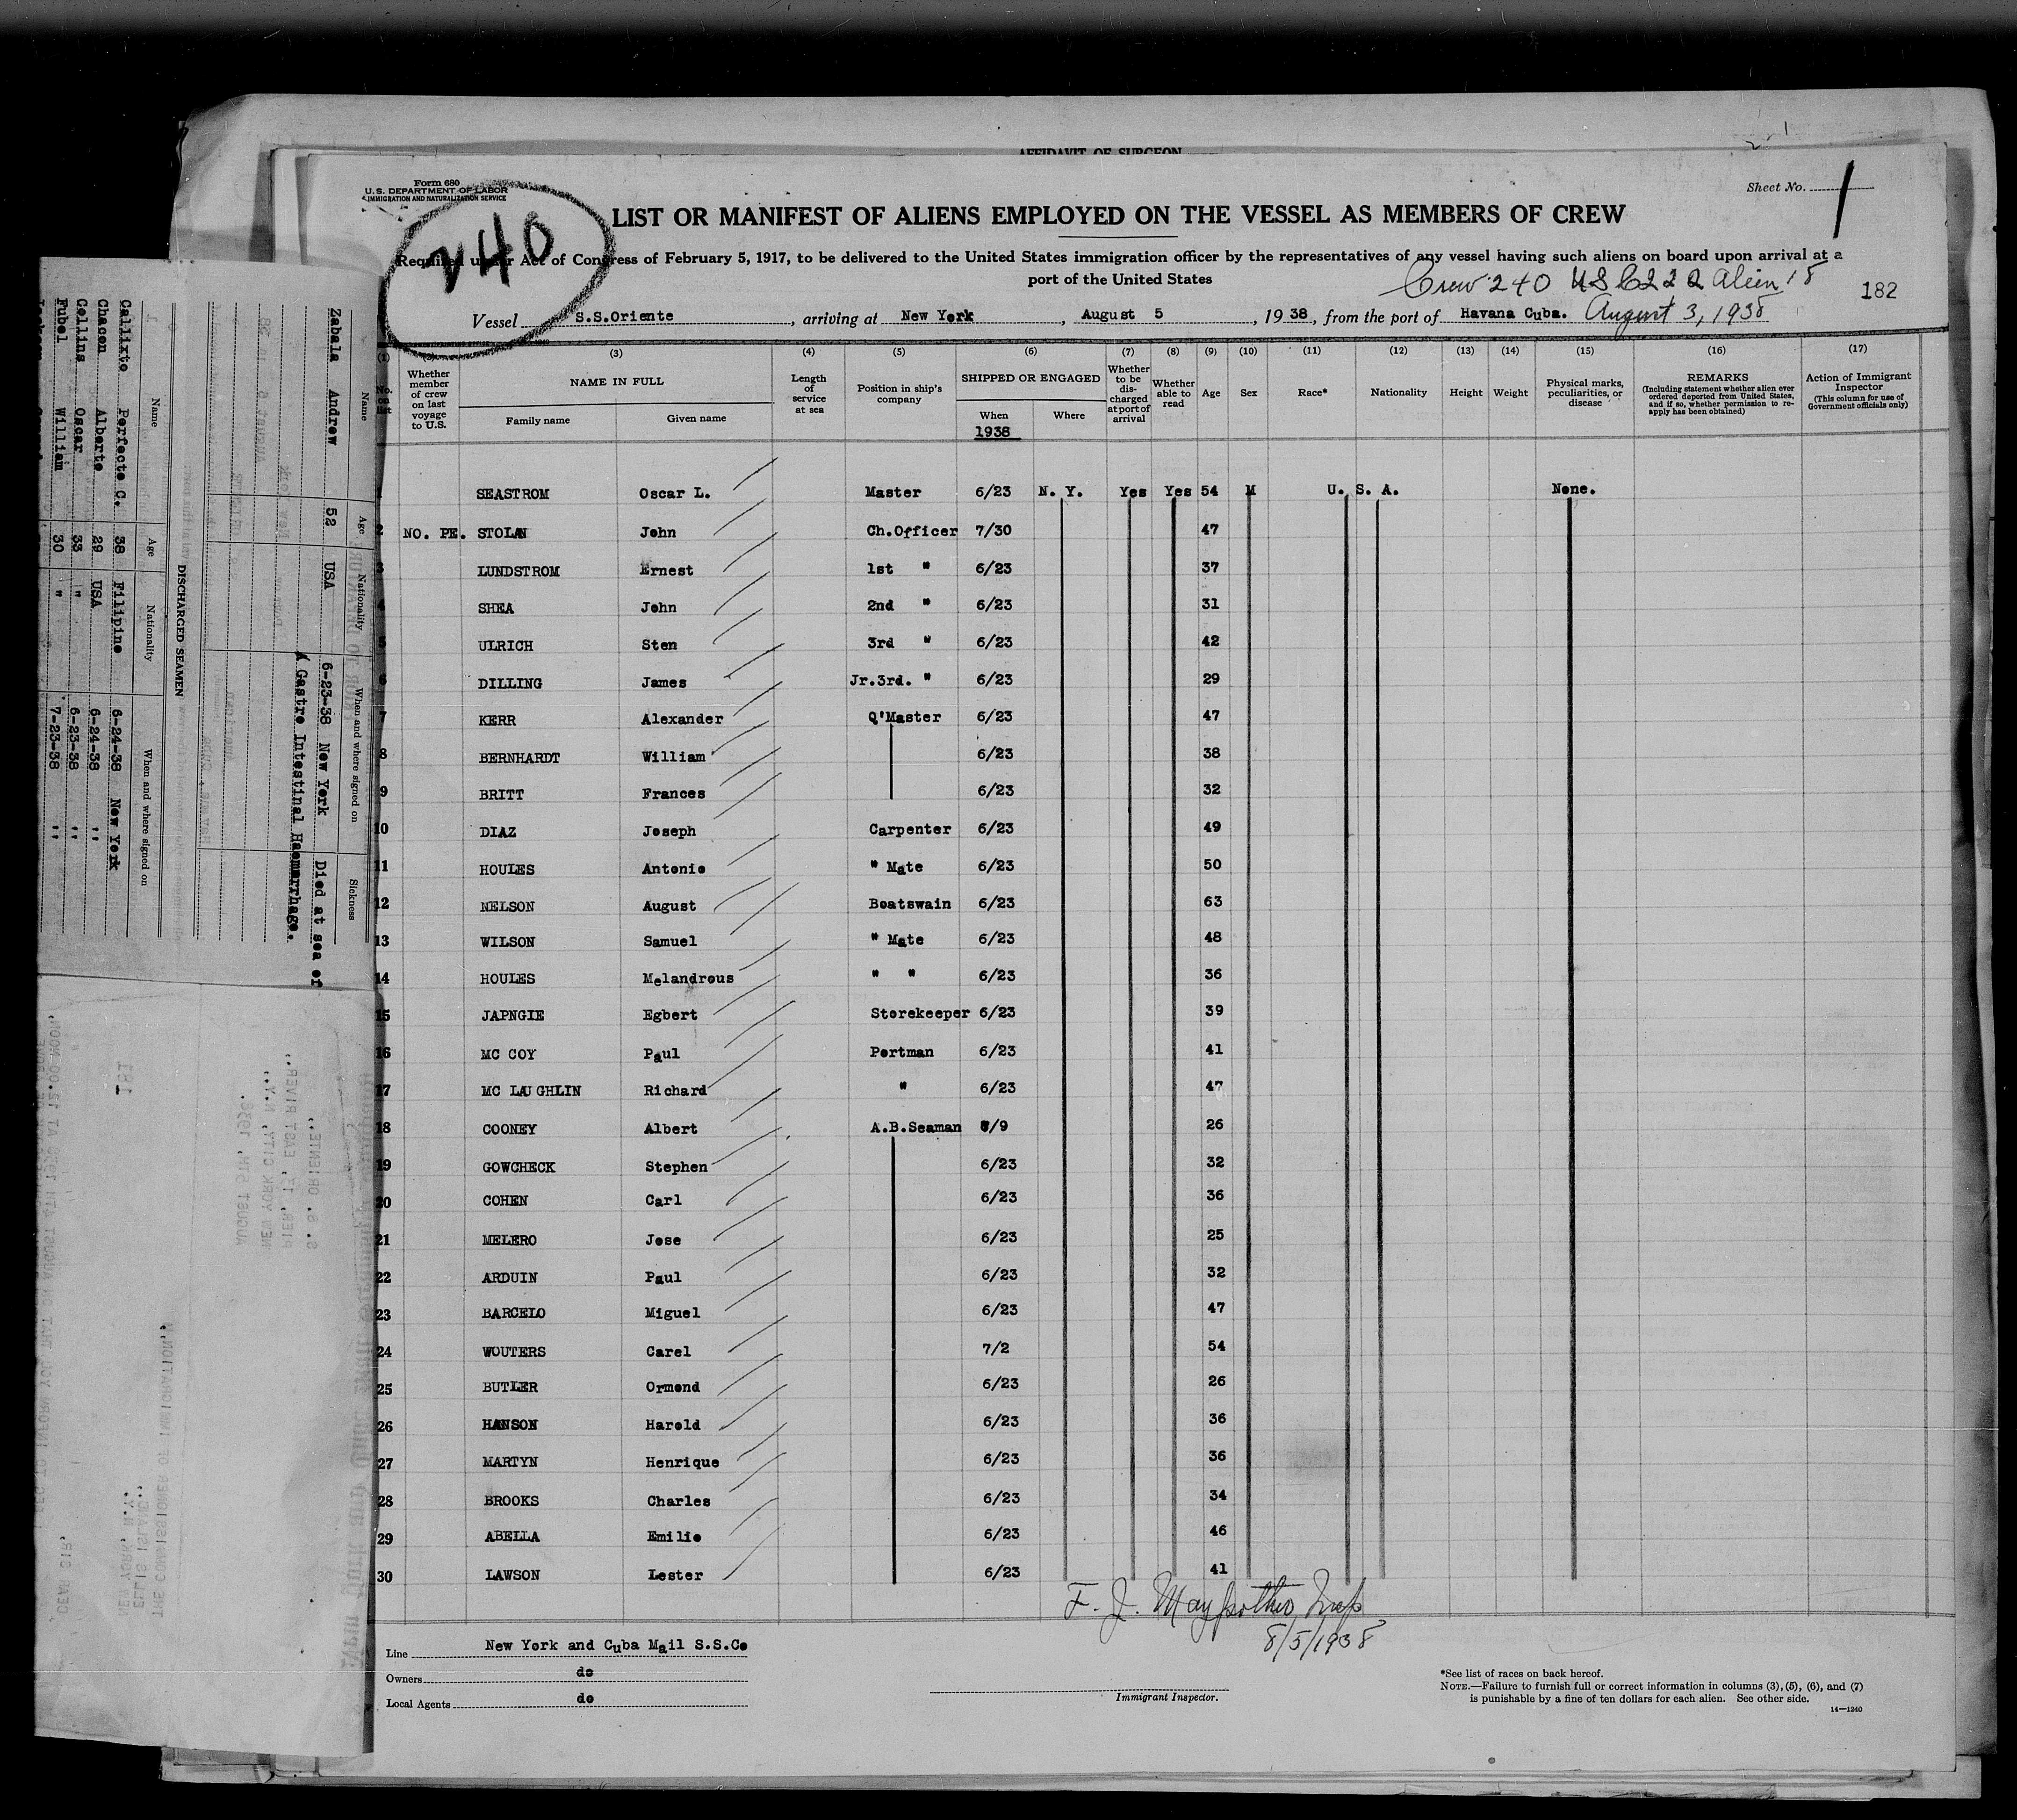 AFFIDAVIT OF SURGEON
Form 680
U.S. DEPARTMENT OF LABOR
IMMIGRATION AND NATURALIZATION SERVICE
Sheet No. 1
240
LIST OR MANIFEST OF ALIENS EMPLOYED ON THE VESSEL AS MEMBERS OF CREW
Required under Act of Congress of February 5, 1917, to be delivered to the United States immigration officer by the representatives of any vessel having such aliens on board upon arrival at a
port of the United States
Crew 240 USC 222 Alien 18
182
Vessel S.S.Oriente, arriving at New York, August 5, 1938, from the port of Havana Cuba. August 3, 1938
(1) (3) (4) (5) (6) (7) (8) (9) (10) (11) (12) (13) (14) (15) (16) (17)
No. on list
Whether member of crew on last voyage to U.S.
NAME IN FULL
Family name Given name
Length of service at sea
Position in ship's company
SHIPPED OR ENGAGED
When 1938 Where
Whether to be discharged at port of arrival
Whether able to read
Age Sex Race* Nationality Height Weight
Physical marks, peculiarities, or disease
REMARKS
(Including statement whether alien ever ordered deported from United States, and if so, whether permission to reapply has been obtained)
Action of Immigrant Inspector
(This column for use of Government officials only)
1 SEASTROM Oscar L. Master 6/23 N. Y. Yes Yes 54 M U. S. A. None.
2 NO. PE. STOLAN John Ch.Officer 7/30 47
3 LUNDSTROM Ernest 1st " 6/23 37
4 SHEA John 2nd " 6/23 31
5 ULRICH Sten 3rd " 6/23 42
6 DILLING James Jr.3rd. " 6/23 29
7 KERR Alexander Q'Master 6/23 47
8 BERNHARDT William 6/23 38
9 BRITT Frances 6/23 32
10 DIAZ Joseph Carpenter 6/23 49
11 HOULES Antonio " Mate 6/23 50
12 NELSON August Boatswain 6/23 63
13 WILSON Samuel " Mate 6/23 48
14 HOULES Melandrous " " 6/23 36
15 JAPNGIE Egbert Storekeeper 6/23 39
16 MC COY Paul Portman 6/23 41
17 MC LAUGHLIN Richard " 6/23 47
18 COONEY Albert A.B.Seaman /9 26
19 GOWCHECK Stephen 6/23 32
20 COHEN Carl 6/23 36
21 MELERO Jose 6/23 25
22 ARDUIN Paul 6/23 32
23 BARCELO Miguel 6/23 47
24 WOUTERS Carel 7/2 54
25 BUTLER Ormond 6/23 26
26 HANSON Harold 6/23 36
27 MARTYN Henrique 6/23 36
28 BROOKS Charles 6/23 34
29 ABELLA Emilio 6/23 46
30 LAWSON Lester 6/23 41
F. J. Insp
8/5/1938
Line New York and Cuba Mail S.S.Co
Owners do
Local Agents do
Immigrant Inspector.
*See list of races on back hereof.
NOTE.—Failure to furnish full or correct information in columns (3), (5), (6), and (7)
is punishable by a fine of ten dollars for each alien. See other side.
14—1240
Name Age Nationality When and where signed on Sickness
Zabala Andrew 52 USA 6-23-38 New York Died at sea of
Gastro Intestinal Haemorrhage.
DISCHARGED SEAMEN
Name Age Nationality When and where signed on
Calixto Perfecto C. 38 Filipino 6-24-38 New York
Chacon Alberto 29 USA 6-24-38 "
Collins Oscar 33 " 6-23-38 "
Fubel William 30 " 7-23-38 "
181
THE COMMISSIONER OF IMMIGRATION,
ELLIS ISLAND,
NEW YORK, N.Y.
DEAR SIR,
S. S. ORIENTE,
PIER, 13, EAST RIVER,
NEW YORK CITY, N.Y.,
AUGUST 5TH, 1938.